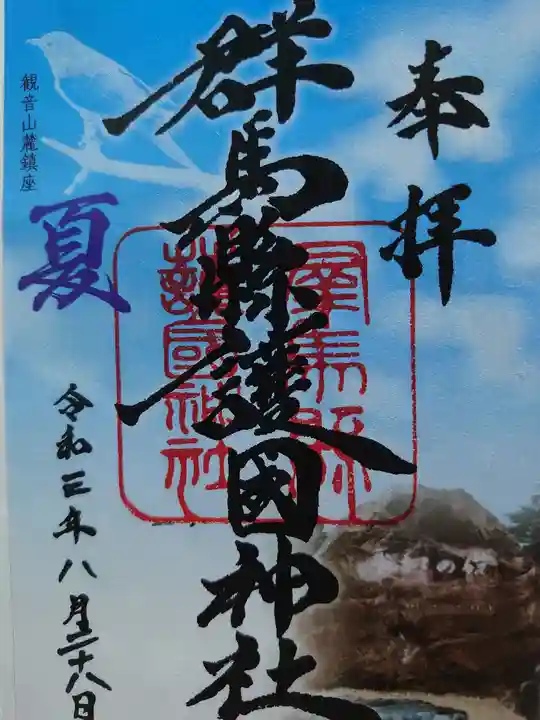 奉拝
群馬縣護國神社
群馬縣
護國神社
観音山麓鎮座
夏
令和三年八月二十八日